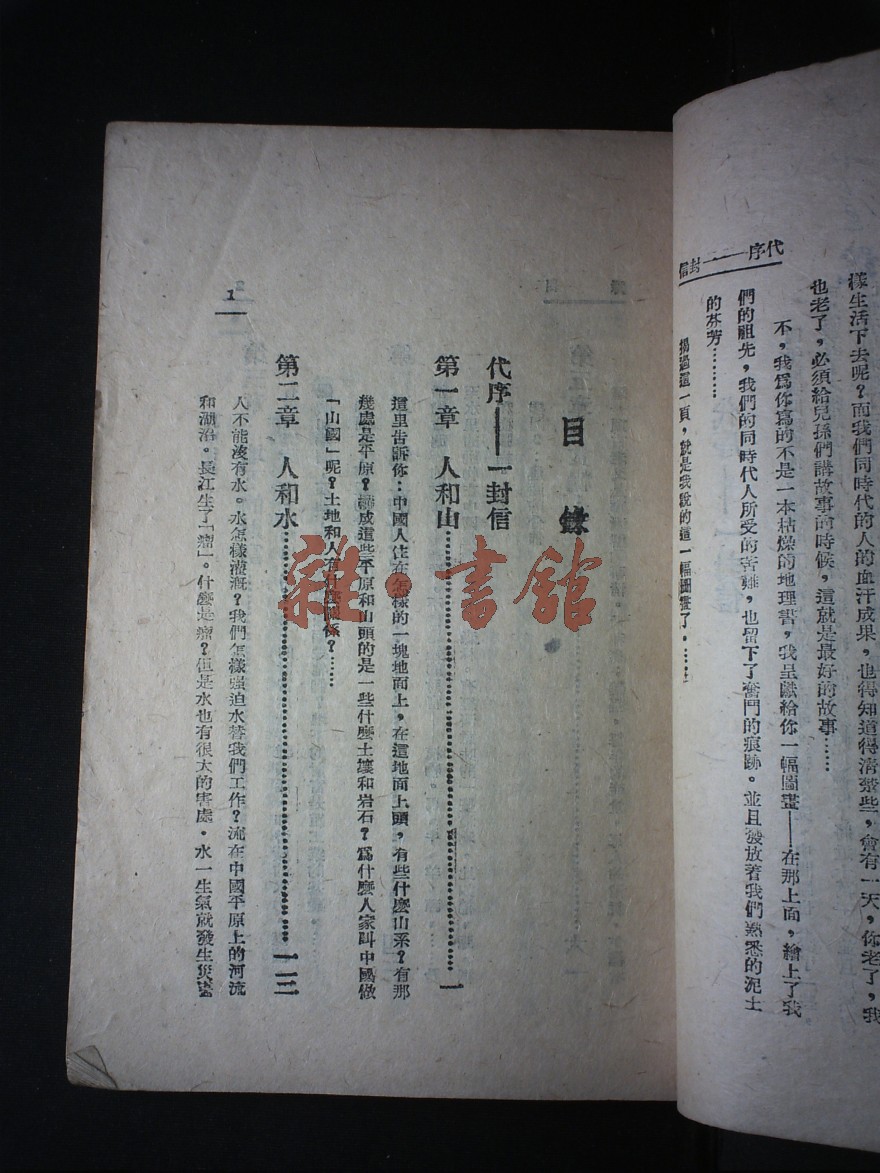 樣生活下去呢?而我們同時代的人的血汗成果,也得知道得清楚些,會有一天,你老了,我
也老了,必須給兒孫們講故事的時候,這就是最好的故事……
不,我爲你寫的不是一本枯燥的地理書,我呈獻給你一幅圖畫——在那上面,繪上了我
們的祖先,我們的同時代人所受的苦難,也留下了奮鬥的痕跡。並且發放着我們熟悉的泥土
的芬芳………
揭過這一頁,就是我說的這一幅圖畫了。……
代序——一封信
目錄
代序——一封信
第一章 人和山……………………一
這里告訴你:中國人住在怎樣的一塊地面上,在這地面上頭,有些什麼山系?有那
幾處是平原?構成這些平原和山頭的是一些什麼土壤和岩石?爲什麼人家叫中國做
「山國」呢?土地和人有什麼關係?……
第二章 人和水……………………一二三
人不能沒有水。水怎樣灌漑?我們怎樣强迫水替我們工作?流在中國平原上的河流
和湖沼。長江生了「瘤」。什麼是瘤?但是水也有很大的害處。水一生氣就發生災
1
雜·書館